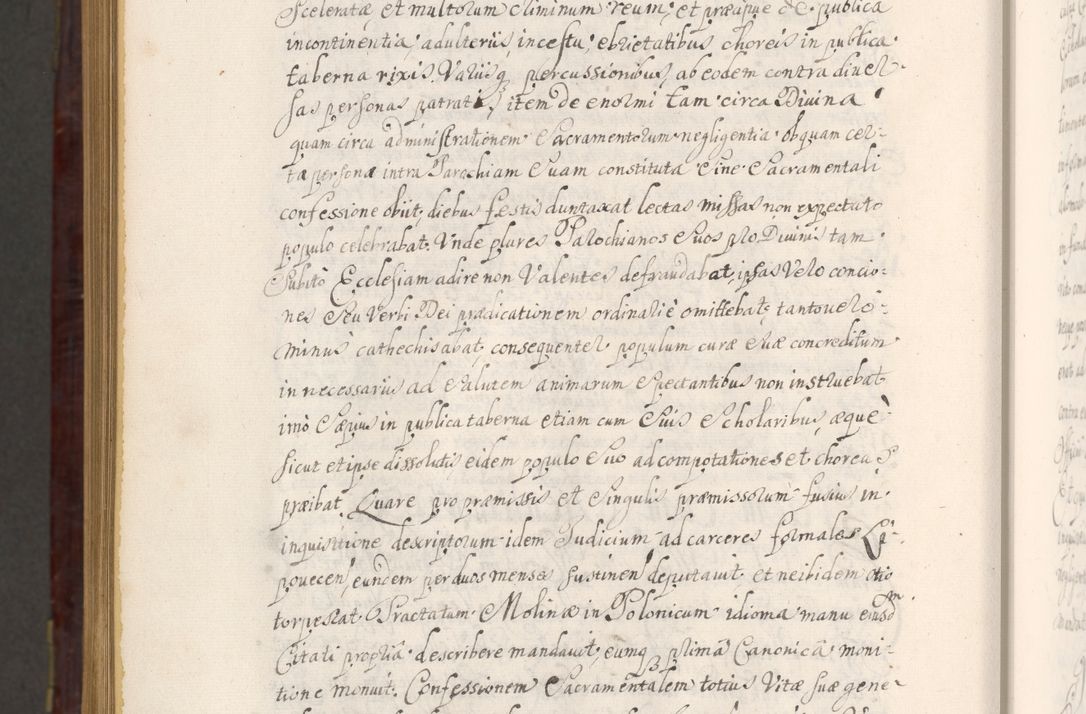 Sceleratæ et multorum criminum reum, et præcipue de publica
incontinentia, adulteriis, incestu, ebrietatibus choreis in publica
taberna rixis, Variisq percussionibus, ab eodem contra diver
sas personas patratis, item de enormi tam circa Divina
quam circa administrationem Sacramentorum negligentia ob quam cer-
ta persona intra Parochiam Suam constituta Sine Sacramentali
confessione obiit, diebus festis duntaxat lectas missas non expectato
populo celebrabat. Unde plures Parochianos Suos pro Divinis tam
Subitò Ecclesiam adire non Valentes defraudabat, ipsas Vero concio-
nes Seu Verbi Dei prædicationem ordinariè omittebat, tantoverò
minus cathechisabat, consequenter populum curæ Suæ concreditum
in necessariis ad Salutem animarum Spectantibus non instruebat
imò Sæpius in publica taberna etiam cum Suis Scholaribus, æquè
sicut et ipse dissolutis eidem populo Suo ad compotationes et choreas
præibat, Quare pro præmissis et Singulis præmissorum fusius in
inquisitione descriptorum idem Judicium ad carceres formales Li-
povecen, eundem per duos menses sustinen deputavit et ne ibidem otio
torpescat Tractatum Molinæ in Polonicum idioma manu eiusdm
Citati propriâ describere mandavit, eumq primâ Canonicâ moni-
tione monuit. Confessionem Sacramentalem totius Vitæ suæ gene-